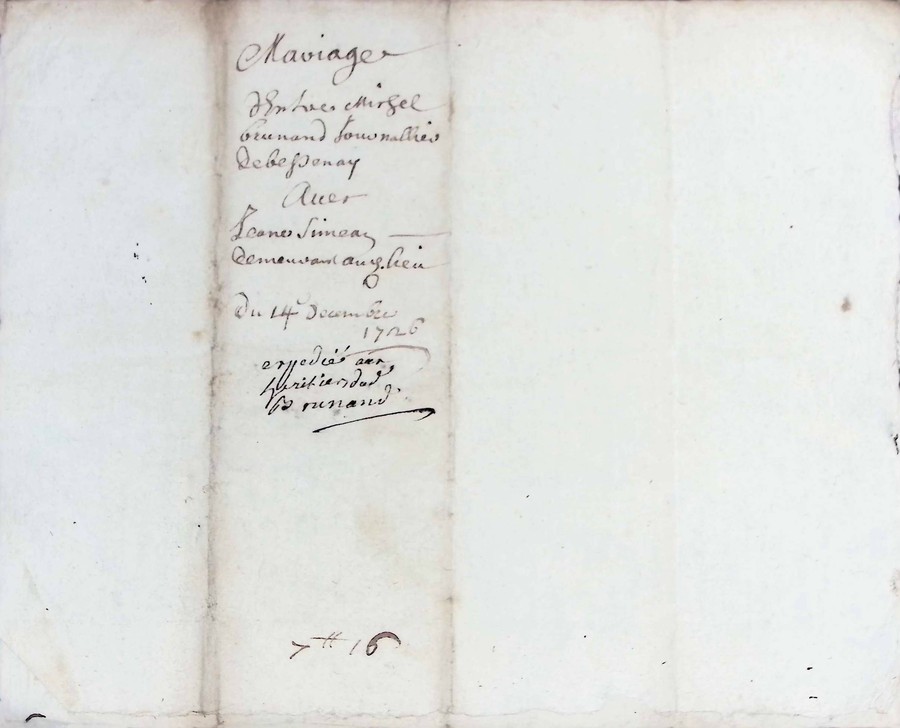 Mariage
d'Entre Michel
brunand Journallier
de bessenay
Avec
Jeanne Simean
demeurant aud. lieu
Du 14e Decembre
1726
expedié aux
heritiers dud.
Brunand
7tt 16